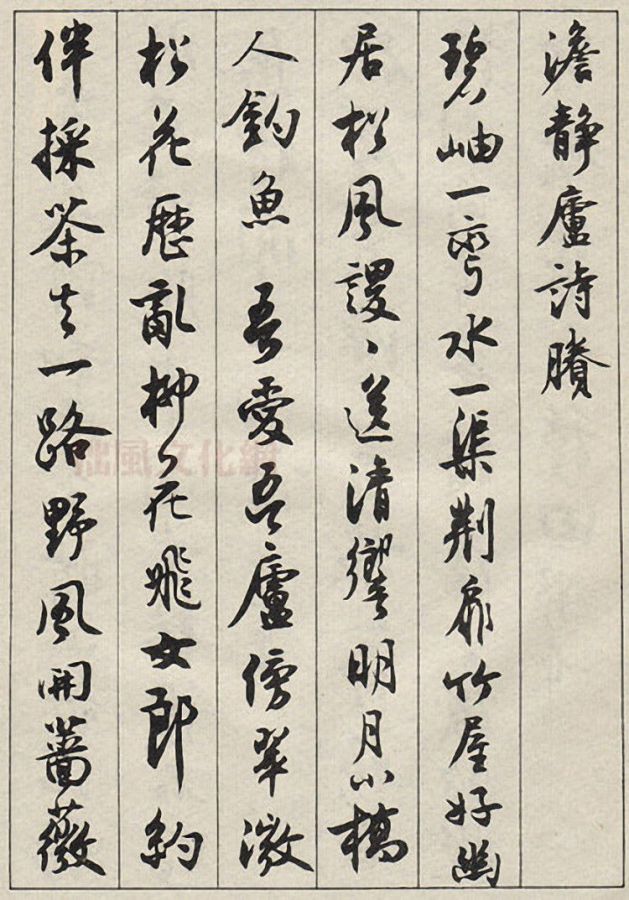 澹静廬詩賸
碧岫一彎水一渠荆扉竹屋好幽
居松風謖、送清響明月小橋
人釣魚 吾愛吾廬傍翠微
松花歷亂柳花飛女郎約
伴採茶去一路野風開薔薇
拙風文化網